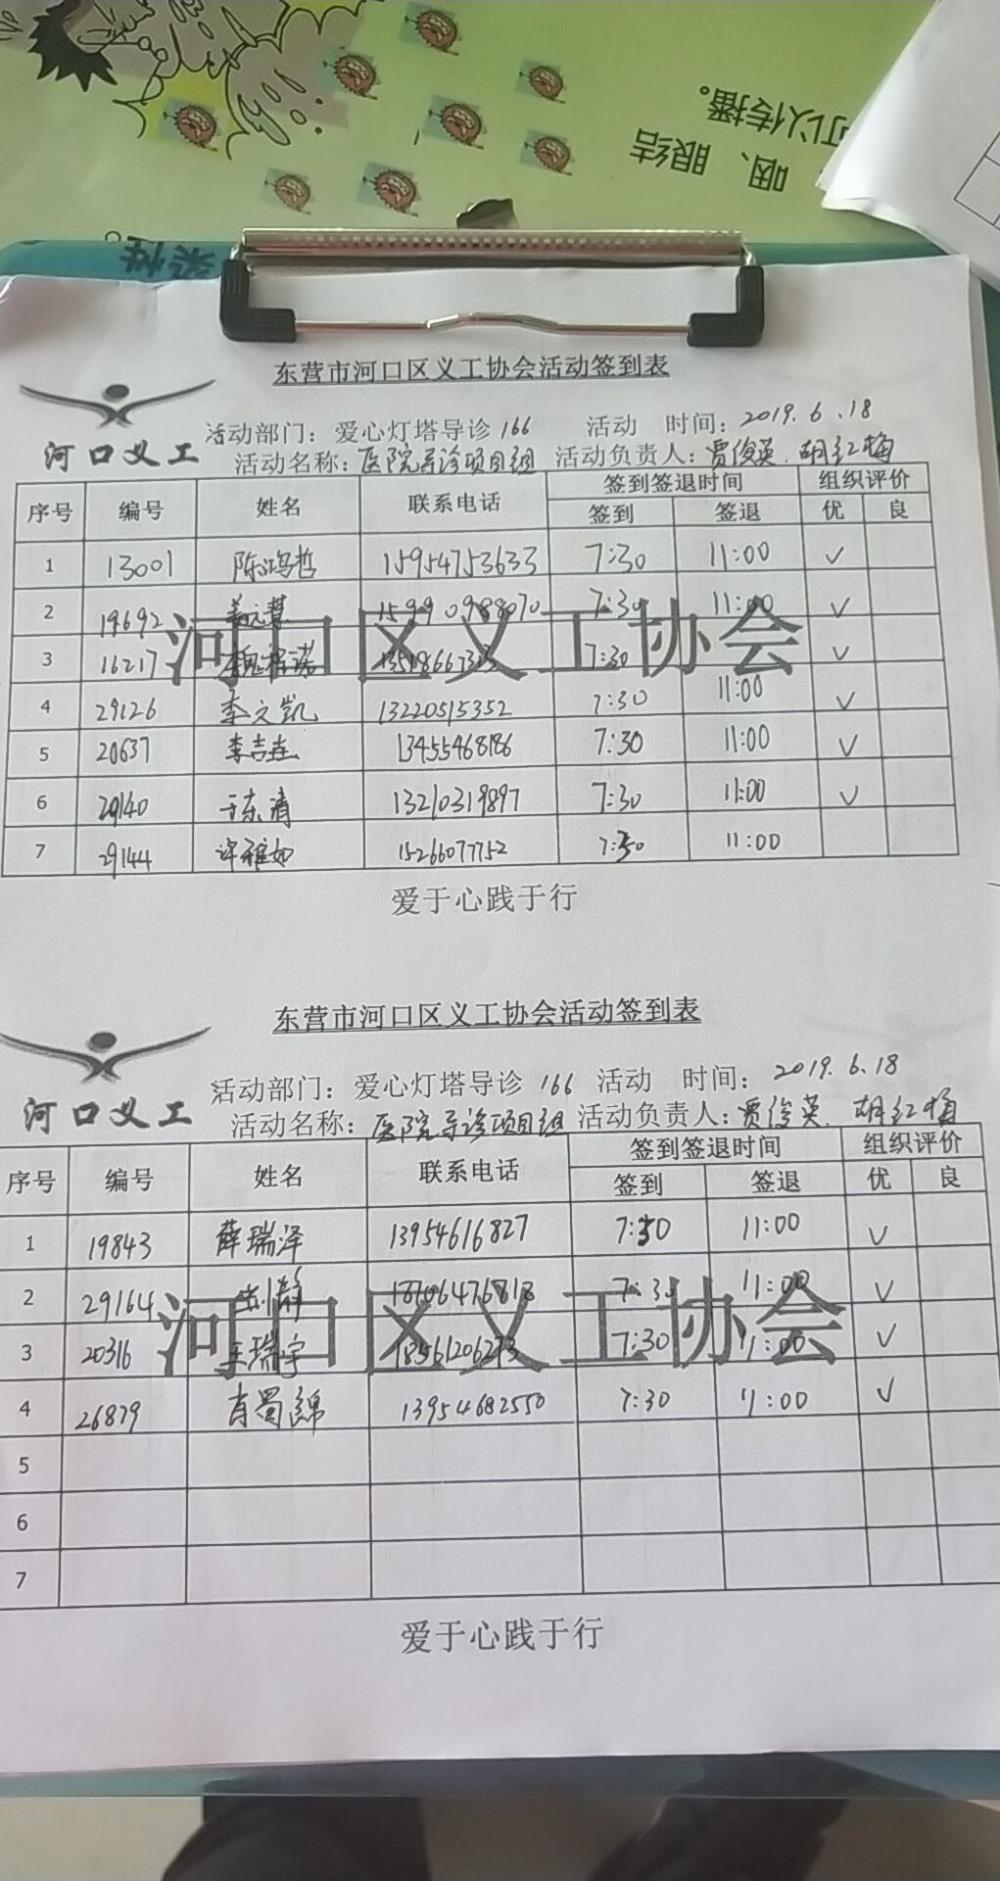 可以传播。
咽、眼结
染性。
东营市河口区义工协会活动签到表
河口义工
活动部门：爱心灯塔导诊 166 活动 时间：2019.6.18
活动名称：医院导诊项目组 活动负责人：贾俊英 胡红梅
序号 编号 姓名 联系电话 签到签退时间 组织评价
签到 签退 优 良
1 13001 陈鸿哲 15954753633 7:30 11:00 ✓
2 19692 7:30 11:00 ✓
3 16217 7:30 ✓
4 29126 李文凯 13220515352 7:30 11:00 ✓
5 20637 李吉连 13455468186 7:30 11:00 ✓
6 29140 于东清 13210319897 7:30 11:00 ✓
7 29144 许雅如 15266077752 7:30 11:00
河口区义工协会
爱于心践于行
东营市河口区义工协会活动签到表
河口义工
活动部门：爱心灯塔导诊 166 活动 时间：2019.6.18
活动名称：医院导诊项目组 活动负责人：贾俊英. 胡红梅
序号 编号 姓名 联系电话 签到签退时间 组织评价
签到 签退 优 良
1 19843 薛瑞泽 13954616827 7:30 11:00 ✓
2 29164 刘静 7:30 11:00 ✓
3 20316 王瑞宇 7:30 11:00 ✓
4 26879 肖蜀锦 13954682550 7:30 11:00 ✓
5
6
7
河口区义工协会
爱于心践于行